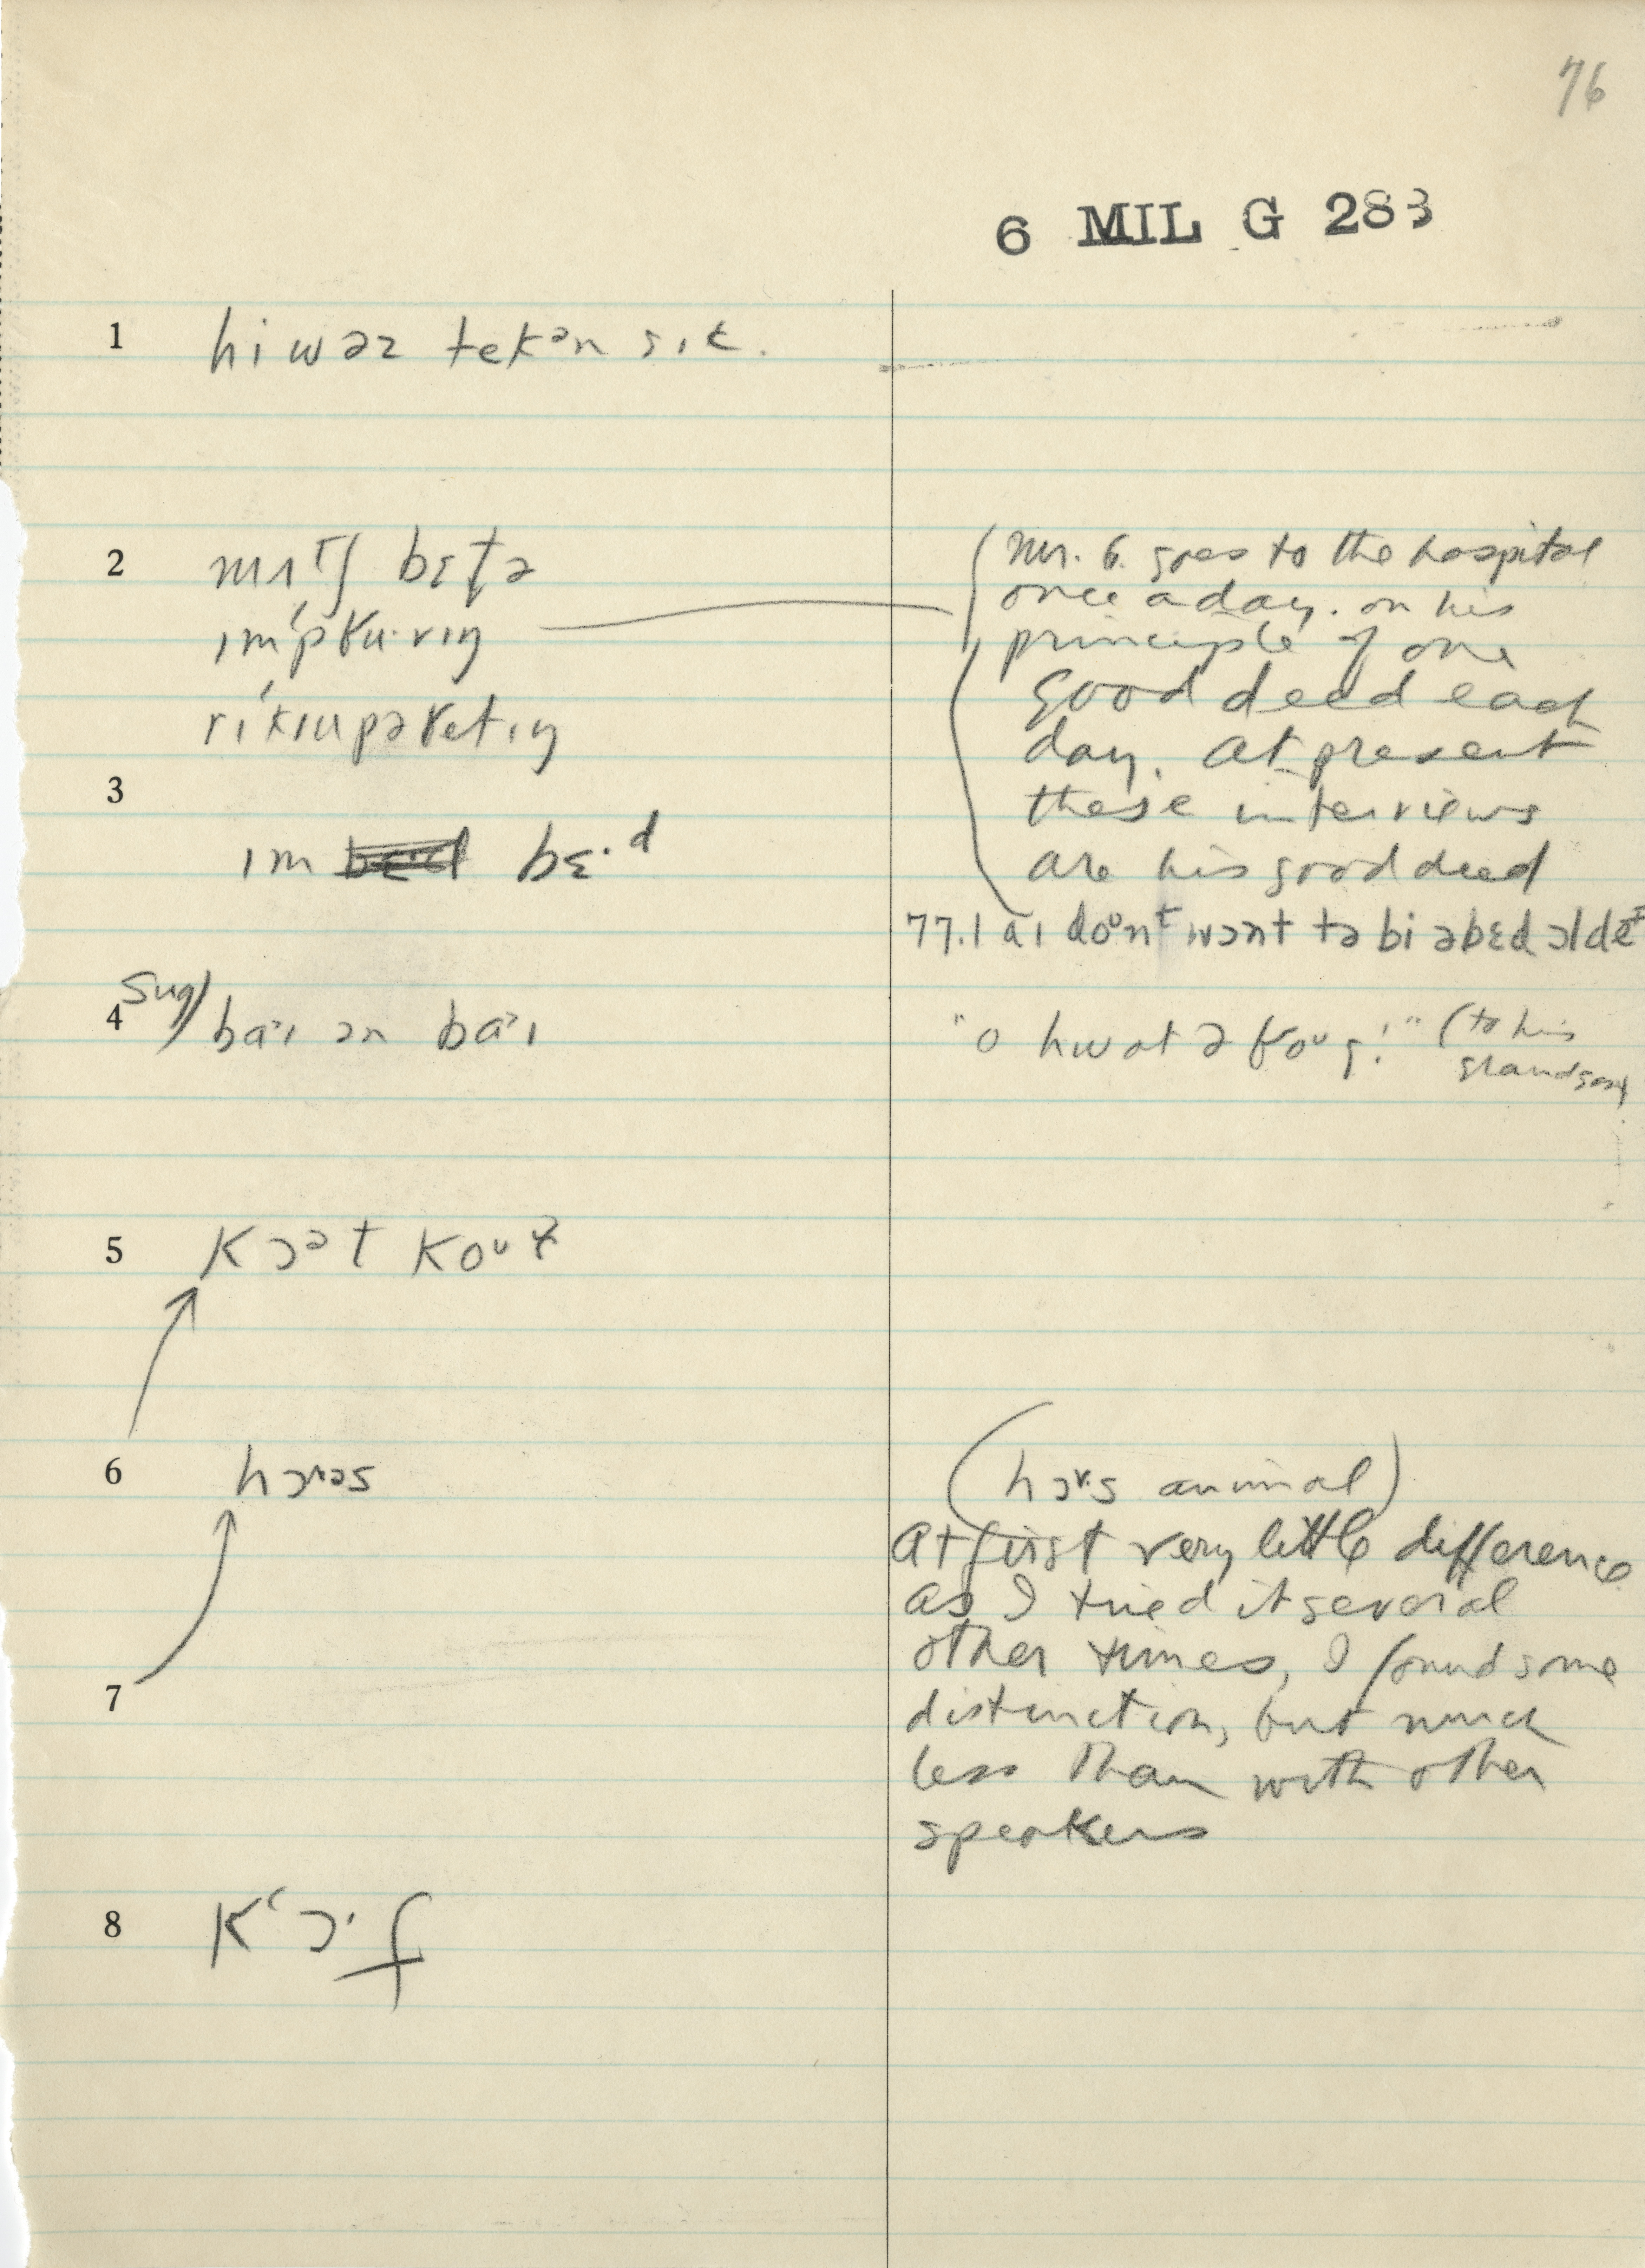 76
6 MIL G 283
1 hi wəz tekən sɪk.
2 mʌtʃ bɛt̬ə
ɪmˈpru·vɪŋ
Mr. G. goes to the hospital
once a day. on his
principle of one
good deed each
day. At present
these interviews
are his good deed
3
ɪm bɛ·d
77.1 aɪ doʊnt wɔnt tə bi əbɛd
4 Sug/ ən
"o hwat ə (to his
grandson)
5 kɔət koʊ
6
(animal)
At first very little difference
As I tried it several
other times, I found some
distinction, but much
less than with other
speakers
7
8 kʻɔ·f